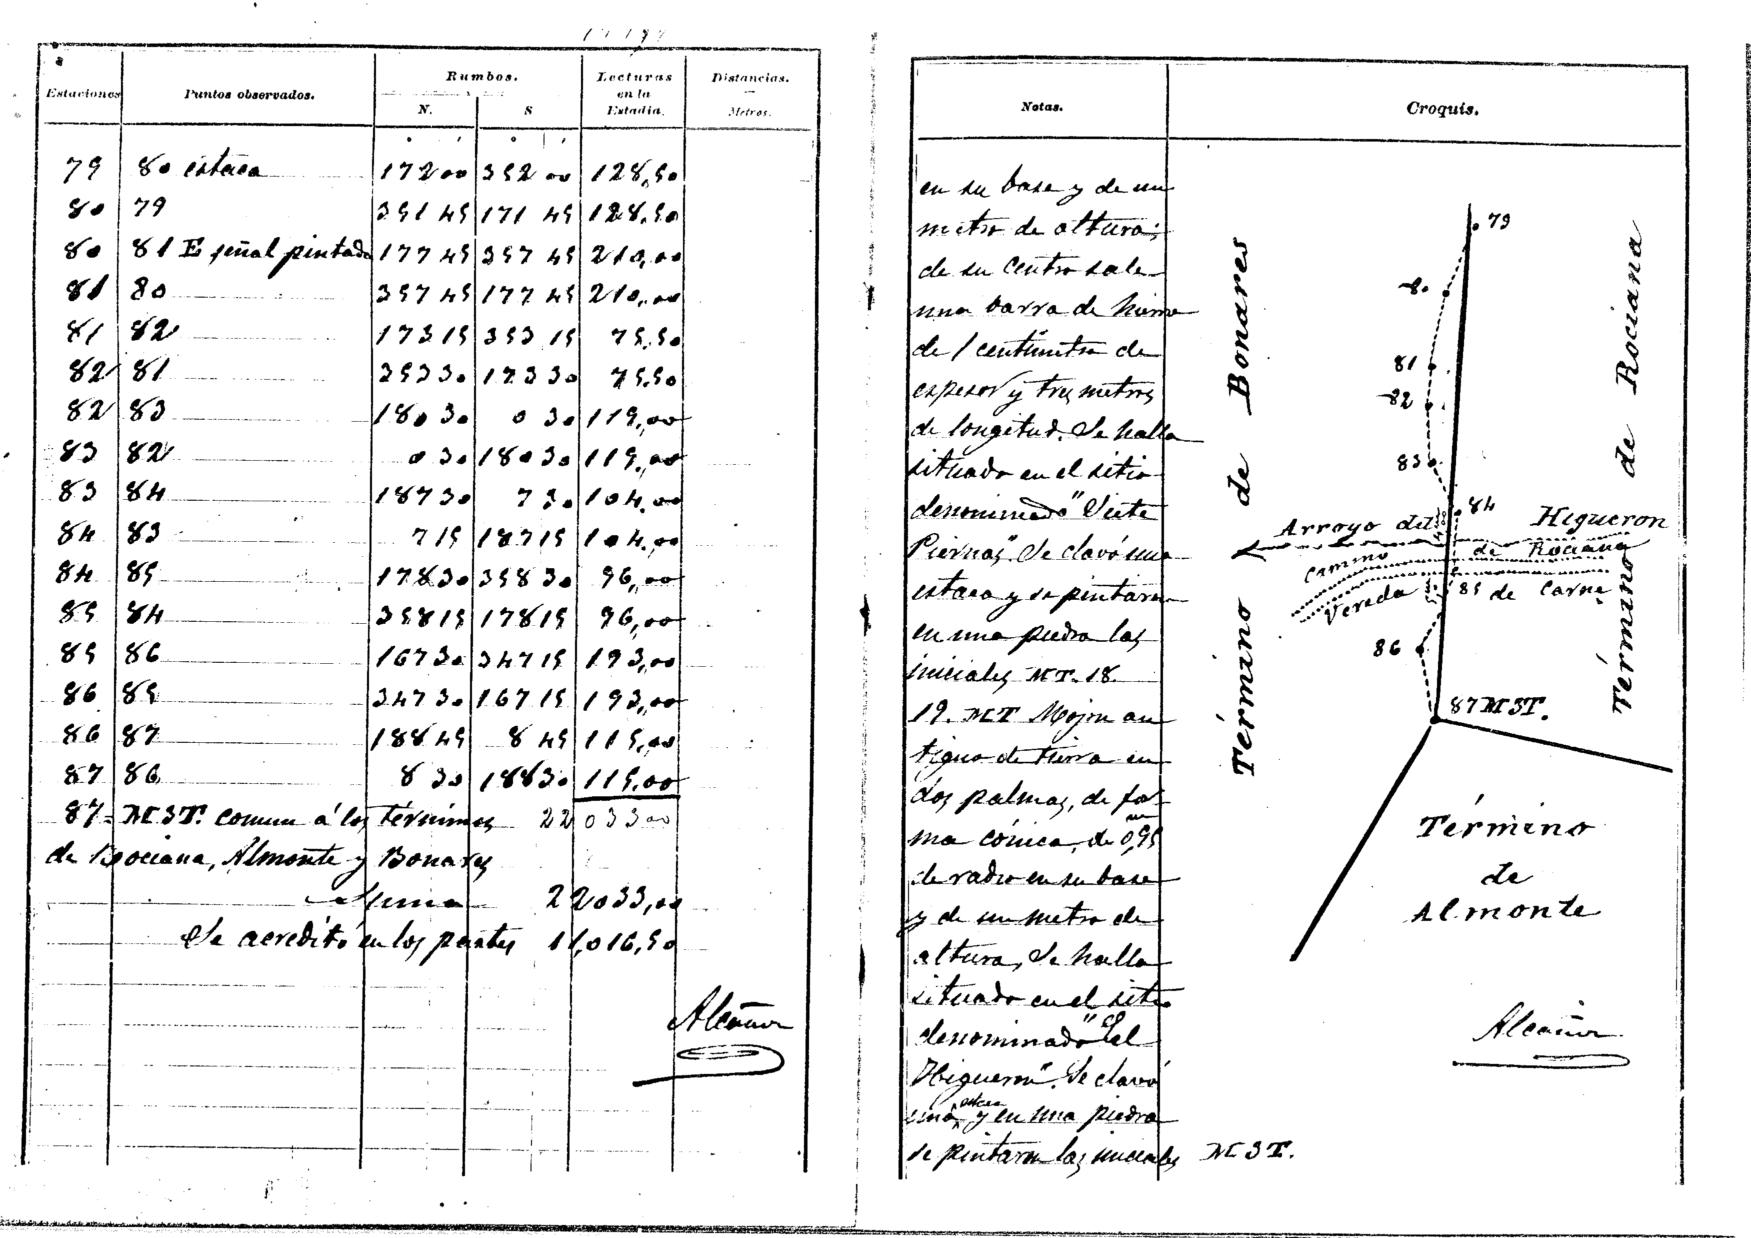 Estaciones Puntos observados. Rumbos. N. S Lecturas en la Estadia. Distancias. Metros.
79 80 estaca 172 00 352 00 128,50
80 79 351 45 171 45 128,50
80 81 E señal pintada 177 45 357 45 210,00
81 80 357 45 177 45 210,00
81 82 173 15 353 15 75,50
82 81 353 30 173 30 75,50
82 83 180 30 0 30 119,00
83 82 0 30 180 30 119,00
83 84 187 30 7 30 104,00
84 83 7 15 187 15 104,00
84 85 178 30 358 30 96,00
85 84 358 15 178 15 96,00
85 86 167 30 347 15 193,00
86 85 347 30 167 15 193,00
86 87 188 45 8 45 115,00
87 86 8 30 188 30 115,00
87 = M3T. comun á los términos 22 033 00
de Rociana, Almonte y Bonares
Suma 22033,00
Se acreditó en los partes 11,016,50
Notas. Croquis.
en su base y de un
metro de altura;
de su centro sale
una barra de hierro
de 1 centímetro de
espesor y tres metros
de longitud. Se halla
situado en el sitio
denominado "Siete
Piernas". Se clavó una
estaca y se pintaron
en una piedra las
iniciales MT. 18.
19. MT Mojon an
tiguo de tierra en
dos palmas, de for
ma cónica, de 0,95 m
de radio en su base
y de un metro de
altura, Se halla
situado en el sitio
denominado "El
Higueron". Se clavó
una estaca y en una piedra
se pintaron las iniciales M3T.
Término de Bonares
Término de Rociana
79
80
81
82
83
84
Arroyo del Higueron
Camino de Rociana
Vereda de Carne
85
86
87 M3T.
Término
de
Almonte